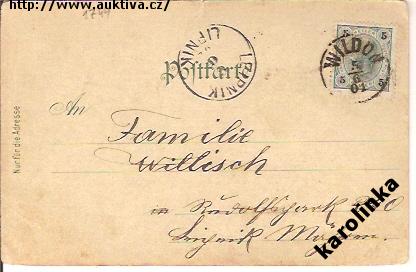 http://www.auktiva.cz/
1744
Postkarte
LEIPNIK LIPNIK
WILDON
5 5
5 5
An
Familie
Willisch
in Rudolfspark
Leipnik Mähren.
Nur für die Adresse
karolinka